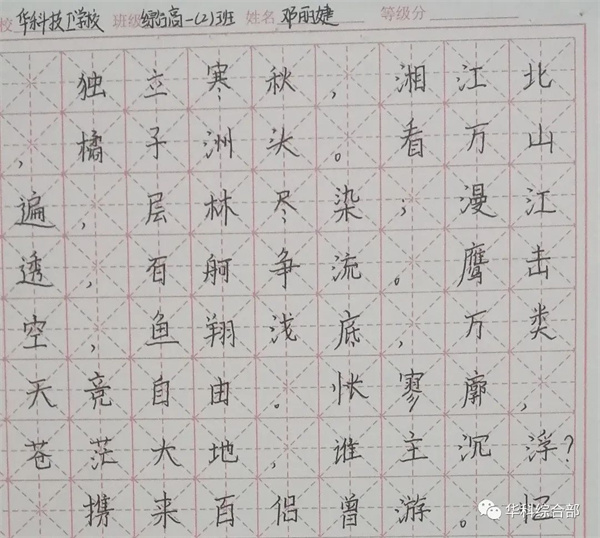 校 华科技工学校 班级 综合高一(2)班 姓名 邓丽婕 等级分
独立寒秋，湘江北
，橘子洲头。看万山
遍，层林尽染；漫江
透，百舸争流。鹰击
空，鱼翔浅底，万类
天竞自由。怅寥廓，
苍茫大地，谁主沉浮？
携来百侣曾游。忆
华科综合部